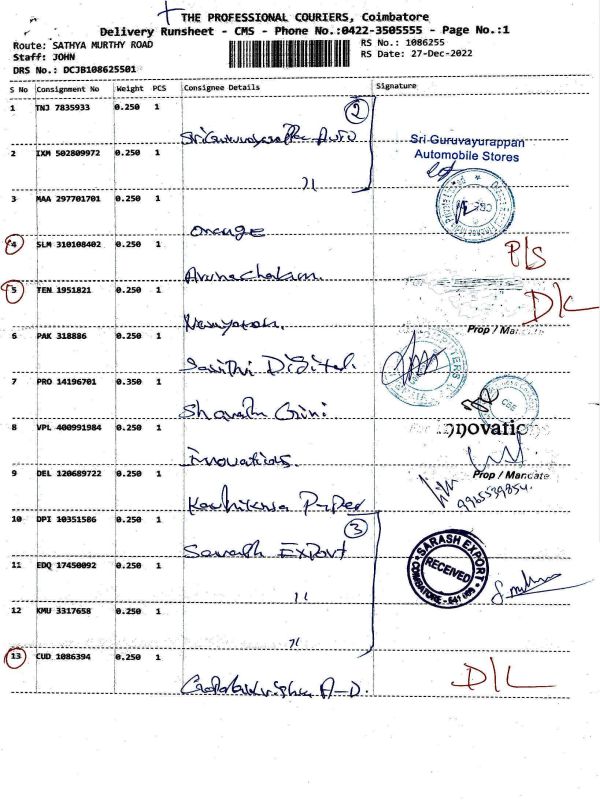 THE PROFESSIONAL COURIERS, Coimbatore
Delivery Runsheet - CMS - Phone No.:0422-3505555 - Page No.:1
Route: SATHYA MURTHY ROAD
RS No.: 1086255
Staff: JOHN
RS Date: 27-Dec-2022
DRS No.: DCJB108625501
S No Consignment No Weight PCS Consignee Details Signature
1 TNJ 7835933 0.250 1
2
Sri Guruvayurappan Auto
Sri Guruvayurappan
Automobile Stores
2 IXM 502809972 0.250 1
"
3 MAA 297701701 0.250 1
orange
4 SLM 310108402 0.250 1
P/S
Arunachalam.
5 TEN 1951821 0.250 1
D/L
Narayanan.
Prop / Manager
6 PAK 318886 0.250 1
Digital.
7 PRO 14196701 0.350 1
CBE
8 VPL 400991984 0.250 1
For Innovations
Innovations.
9 DEL 120689722 0.250 1
Prop / Manager
Paper
10 DPI 10351586 0.250 1
3
Sarash Export
SARASH EXPORT
RECEIVED
COIMBATORE - 641 009
11 EDQ 17450092 0.250 1
"
12 KMU 3317658 0.250 1
"
13 CUD 1086394 0.250 1
D/L
Gopalakrishna A-D.